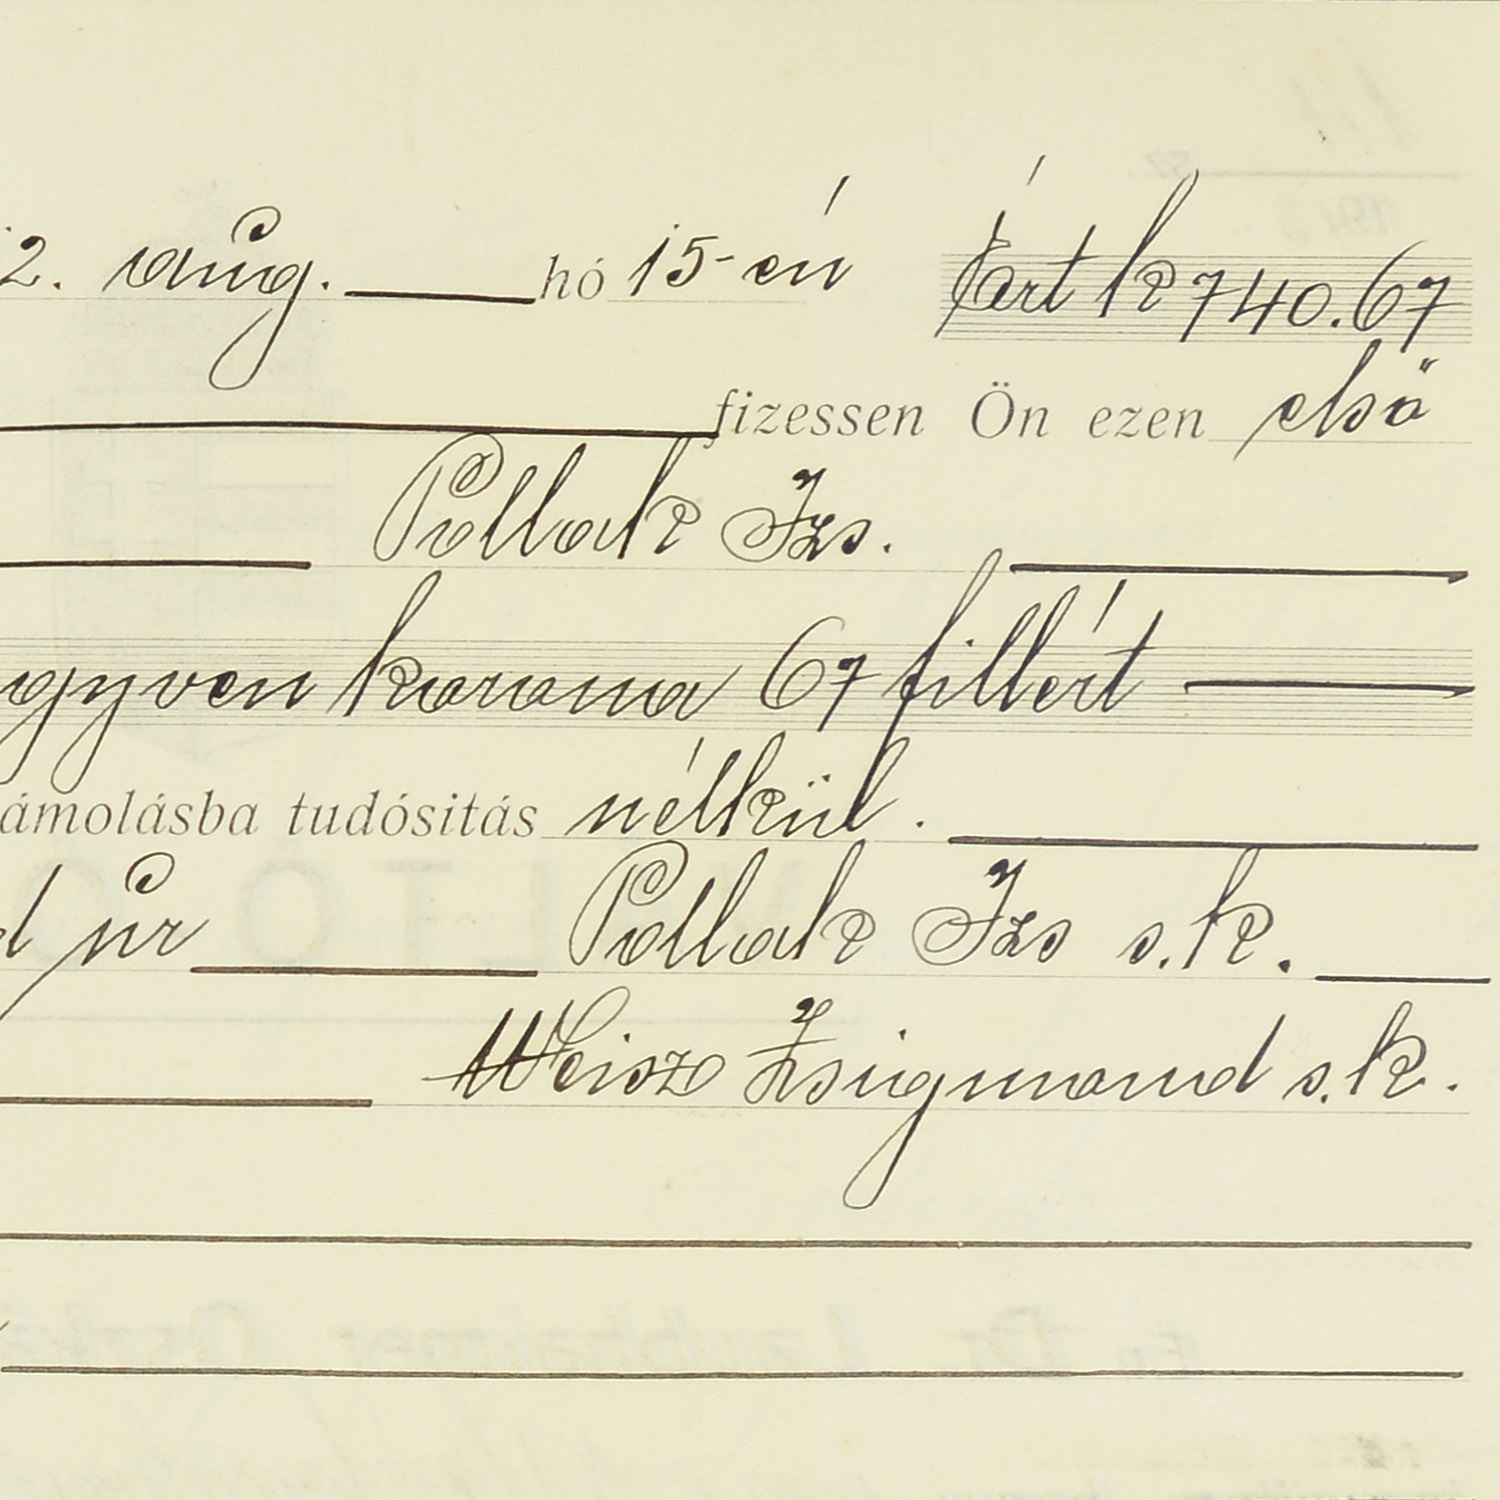 2. aug. hó 15-én Ért K 740.67
fizessen Ön ezen első
Pollak Izs.
gyven korona 67 fillért
ámolásba tudósitás nélkül.
d úr Pollak Izs s.k.
Weisz Zsigmond s.k.